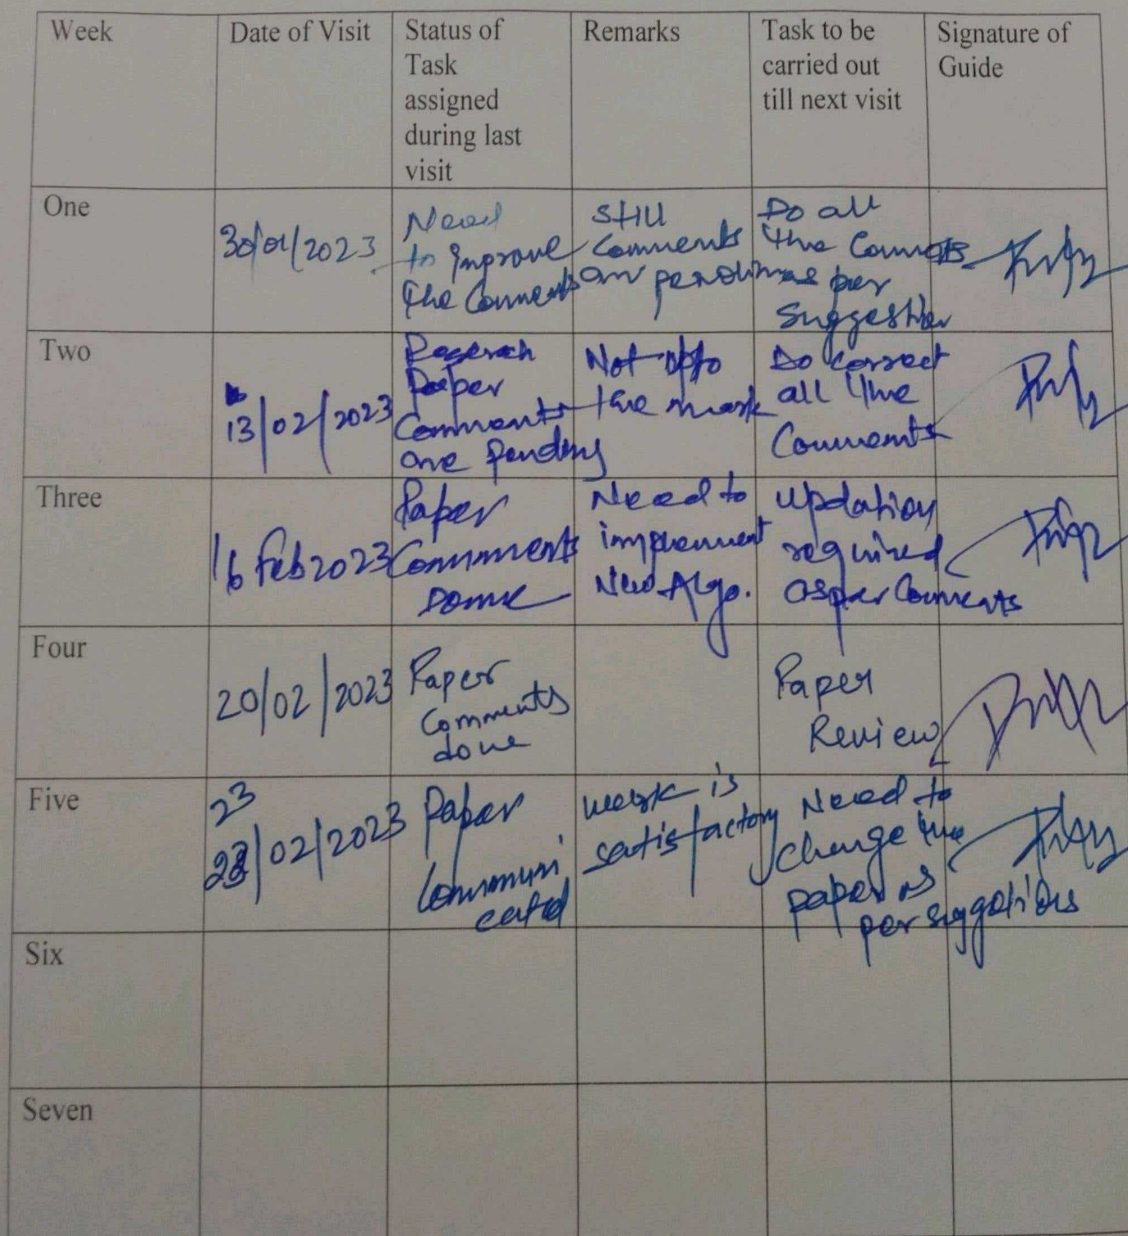 Week
Date of Visit
Status of
Task
assigned
during last
visit
Remarks
Task to be
carried out
till next visit
Signature of
Guide
One
30/01/2023
Need
to Improve
the Comments
Still
Comments
are pending
Do all
the Comments
as per
Suggestion
Two
13/02/2023
Paper
Comments
are Pending
Not upto
the mark
Do correct
all the
Comments
Three
16 Feb 2023
Paper
Comments
Done
Need to
implement
New Algo.
updation
required
as per Comments
Four
20/02/2023
Paper
Comments
done
Paper
Review
Five
23
/02/2023
Paper
Communi
cated
work is
satisfactory
Need to
change the
paper as
per
Six
Seven